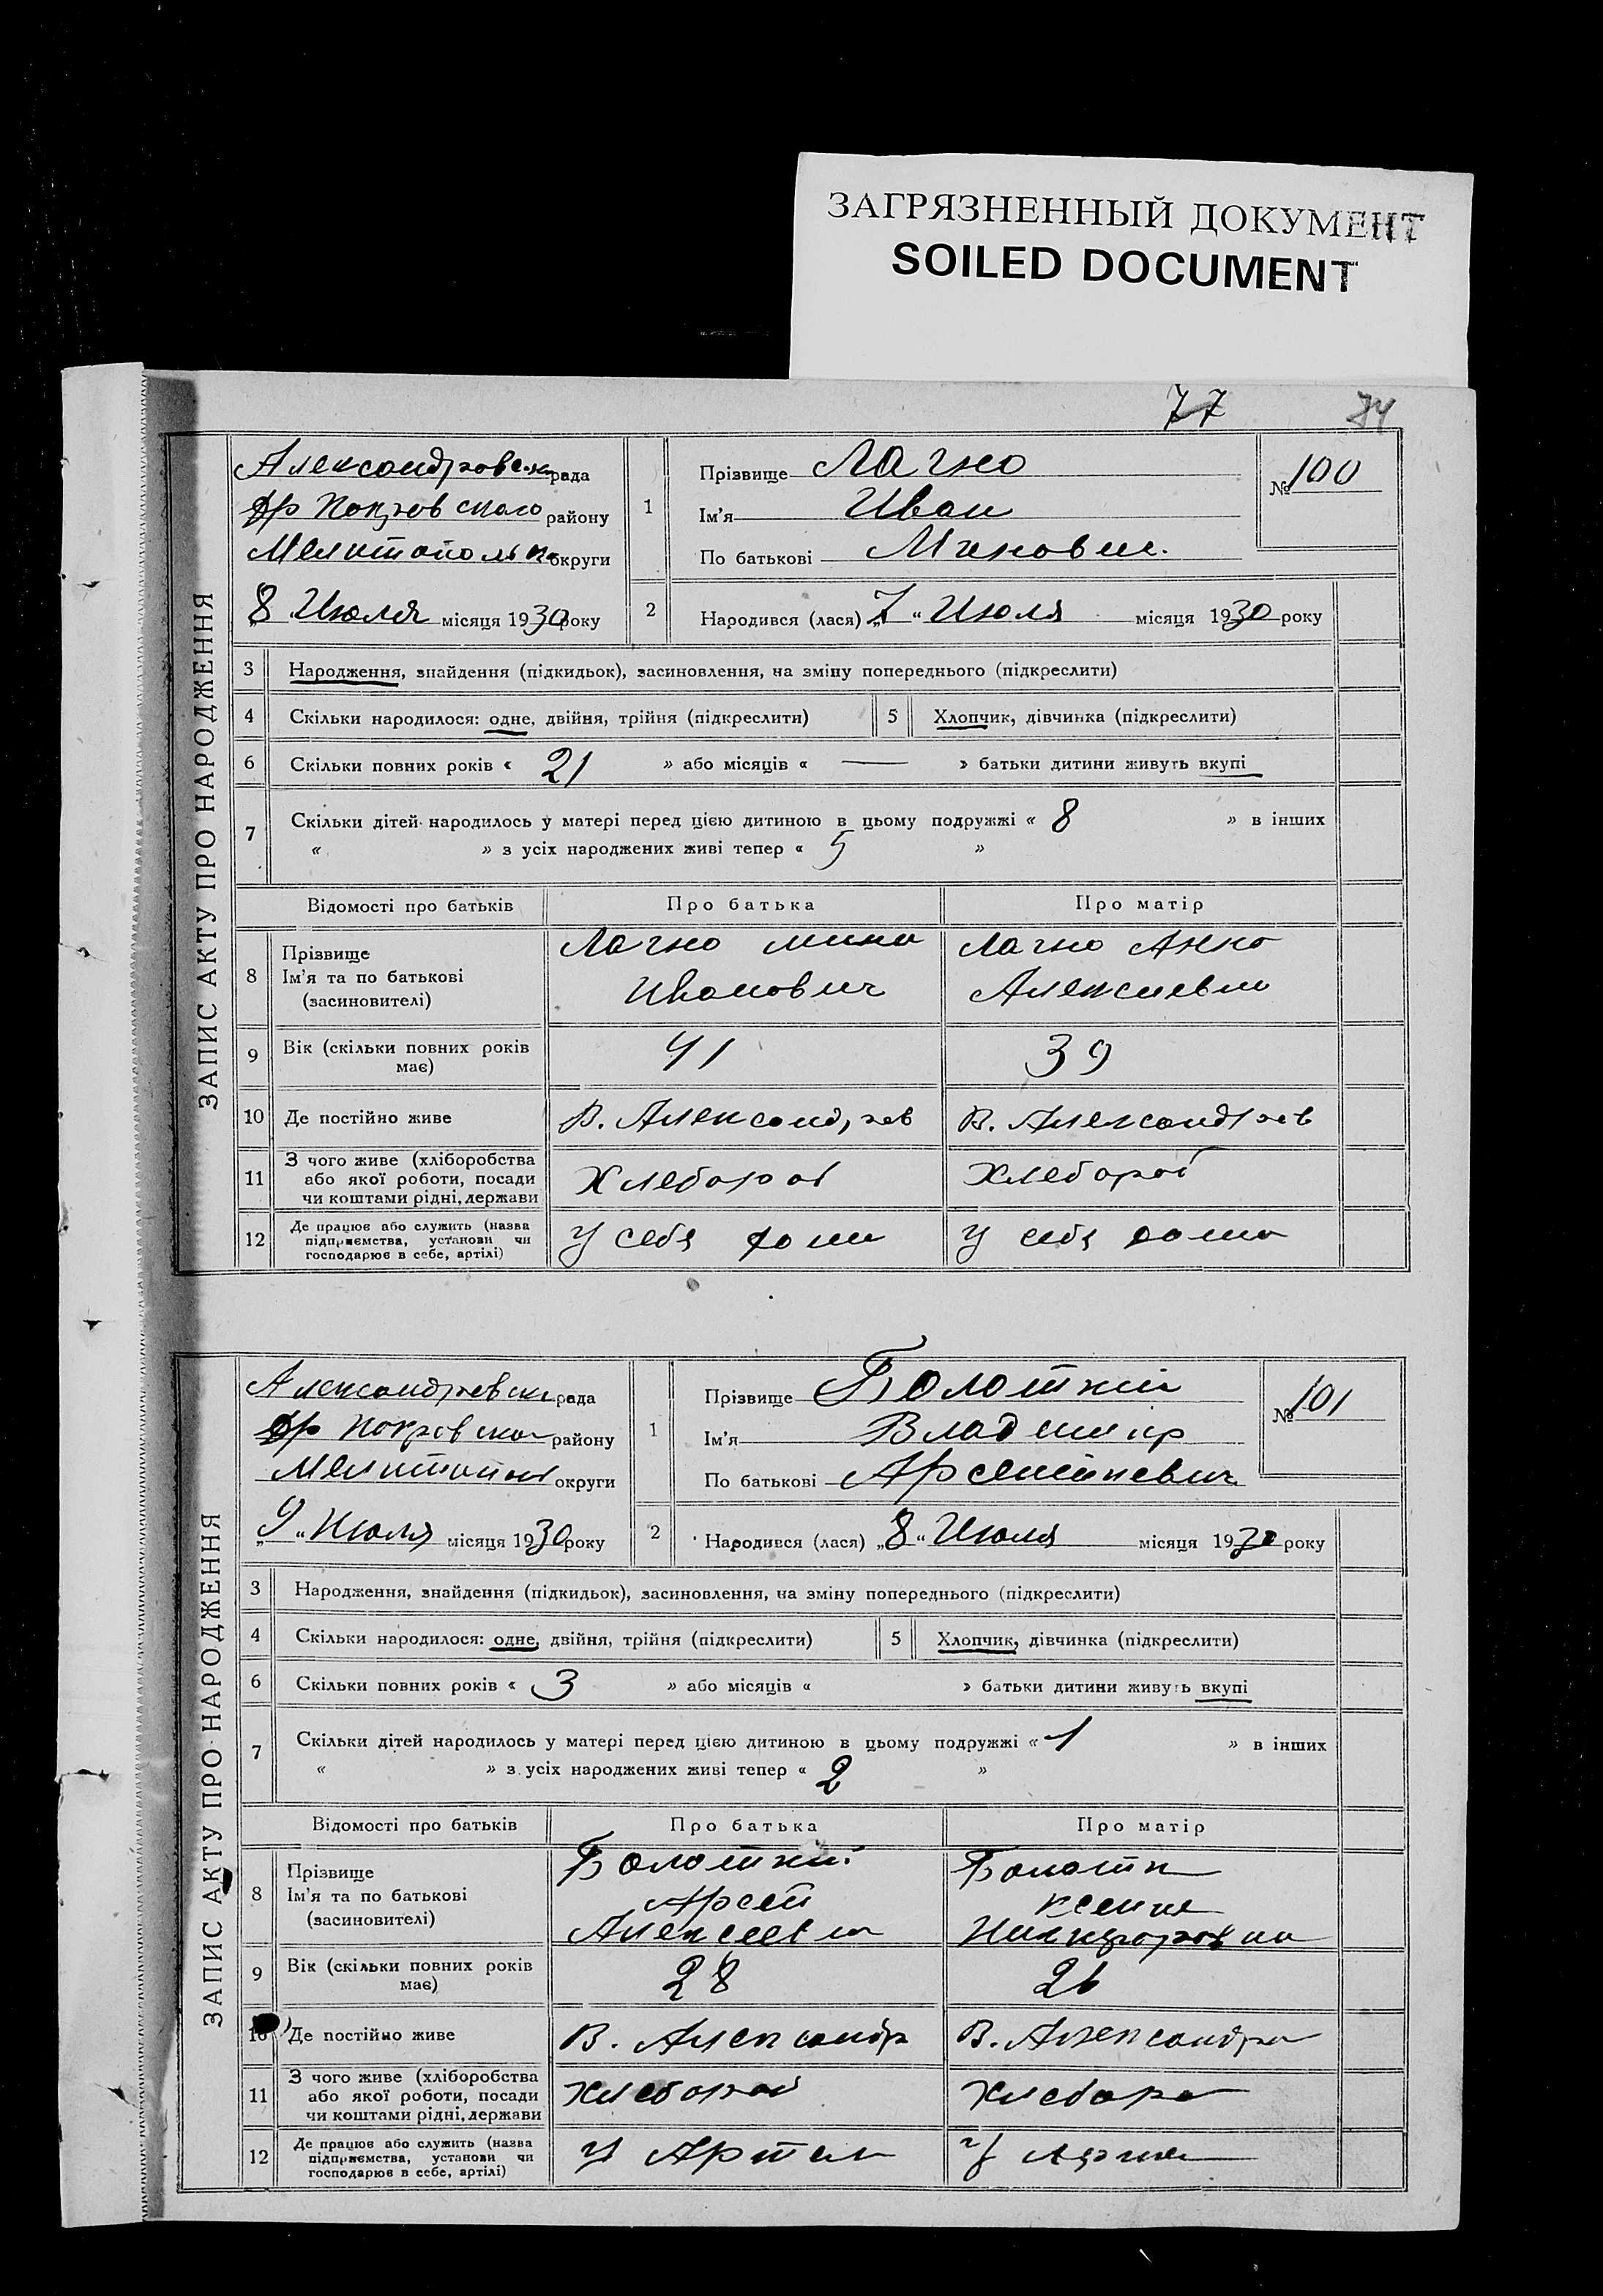 ЗАГРЯЗНЕННЫЙ ДОКУМЕНТ
SOILED DOCUMENT
77 74
ЗАПИС АКТУ ПРО НАРОДЖЕННЯ
Александровск рада
Покровского району
Мелитопольк округи
„8 Июля місяця 1930 року
1 Прізвище Лагно
Ім'я Иван
По батькові Минович.
№ 100
2 Народився (лася) „7“ Июля місяця 1930 року
3 Народження, знайдення (підкидьок), засиновлення, на зміну попереднього (підкреслити)
4 Скільки народилося: одне, двійня, трійня (підкреслити) 5 Хлопчик, дівчинка (підкреслити)
6 Скільки повних років « 21 » або місяців « — » батьки дитини живуть вкупі
7 Скільки дітей народилось у матері перед цією дитиною в цьому подружжі « 8 » в інших
« » з усіх народжених живі тепер « 5 »
Відомості про батьків Про батька Про матір
8 Прізвище
Ім'я та по батькові
(засиновителі)
Лагно мина
Иванович
Лагно Анна
Алексиевна
9 Вік (скільки повних років
має) 41 39
10 Де постійно живе В. Александров В. Александров
11 З чого живе (хліборобства
або якої роботи, посади
чи коштами рідні, держави
Хлебороб Хлебороб
12 Де працює або служить (назва
підприємства, установи чи
господарює в себе, артілі)
У себя дома У себя дома
ЗАПИС АКТУ ПРО НАРОДЖЕННЯ
Александровск рада
Покровског району
Мелитопол округи
„9“ Июля місяця 1930 року
1 Прізвище Болоткий
Ім'я Владимир
По батькові Арсентиевич
№ 101
2 Народився (лася) „8“ Июля місяця 1930 року
3 Народження, знайдення (підкидьок), засиновлення, на зміну попереднього (підкреслити)
4 Скільки народилося: одне, двійня, трійня (підкреслити) 5 Хлопчик, дівчинка (підкреслити)
6 Скільки повних років « 3 » або місяців « » батьки дитини живуть вкупі
7 Скільки дітей народилось у матері перед цією дитиною в цьому подружжі « 1 » в інших
« » з усіх народжених живі тепер « 2 »
Відомості про батьків Про батька Про матір
8 Прізвище
Ім'я та по батькові
(засиновителі)
Болоткий
Арсен
Алексеевич
Болотк
ксения
Никифоровна
9 Вік (скільки повних років
має) 28 26
10 Де постійно живе В. Александр В. Александра
11 З чого живе (хліборобства
або якої роботи, посади
чи коштами рідні, держави
Хлебороб Хлеборо
12 Де працює або служить (назва
підприємства, установи чи
господарює в себе, артілі)
У Артел У Артел